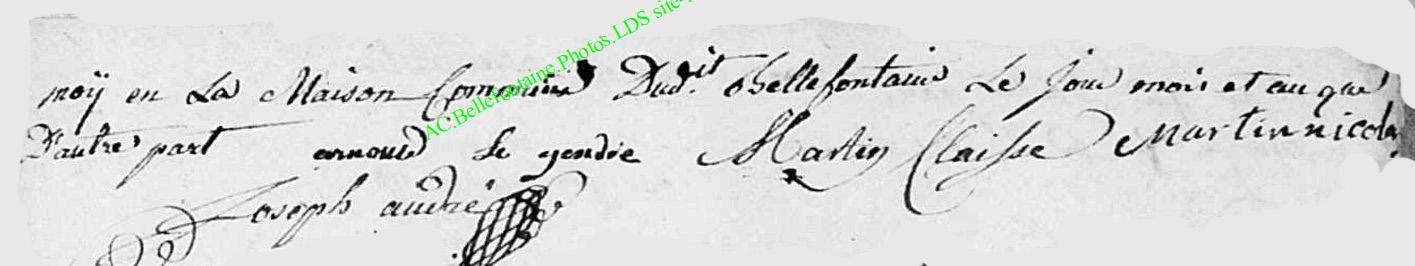 moÿ en La Maison Commune Dud.it Bellefontaine Le Jour mois et an que
D'autre part arnould Le gendre Martin Claisse Martin nicolas
Joseph andré
AC.Bellefontaine.Photos.LDS site